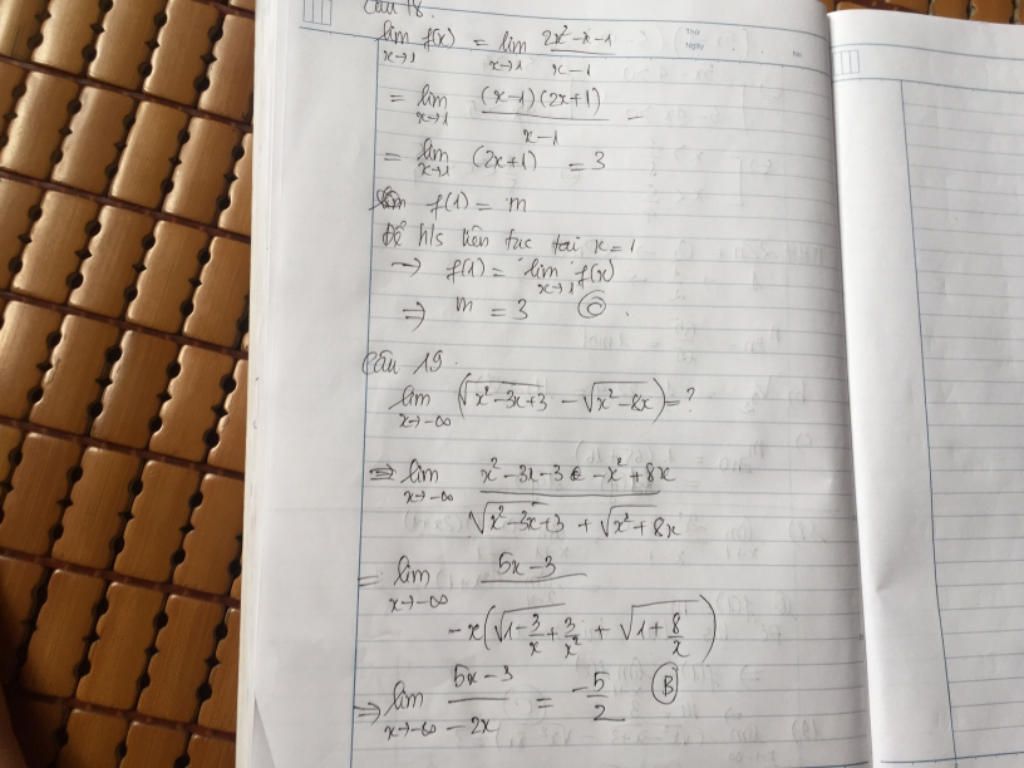 Câu 18.
lim x→1 f(x) = lim x→1 (2x² - x - 1)/(x - 1)
= lim x→1 ((x-1)(2x+1))/(x-1) =
= lim x→1 (2x+1) = 3
f(1) = m
Để h/s liên tục tại x = 1
→ f(1) = lim x→1 f(x)
⇒ m = 3 Ⓒ.
Câu 19.
lim x→-∞ (√(x²-3x+3) - √(x²-8x)) = ?
= lim x→-∞ (x² - 3x - 3 - x² + 8x)/(√(x²-3x+3) + √(x²+8x))
= lim x→-∞ (5x - 3)/(-x(√(1 - 3/x + 3/x²) + √(1 + 8/x)))
⇒ lim x→-∞ (5x - 3)/(-2x) = -5/2 Ⓑ
Thứ
Ngày
No.